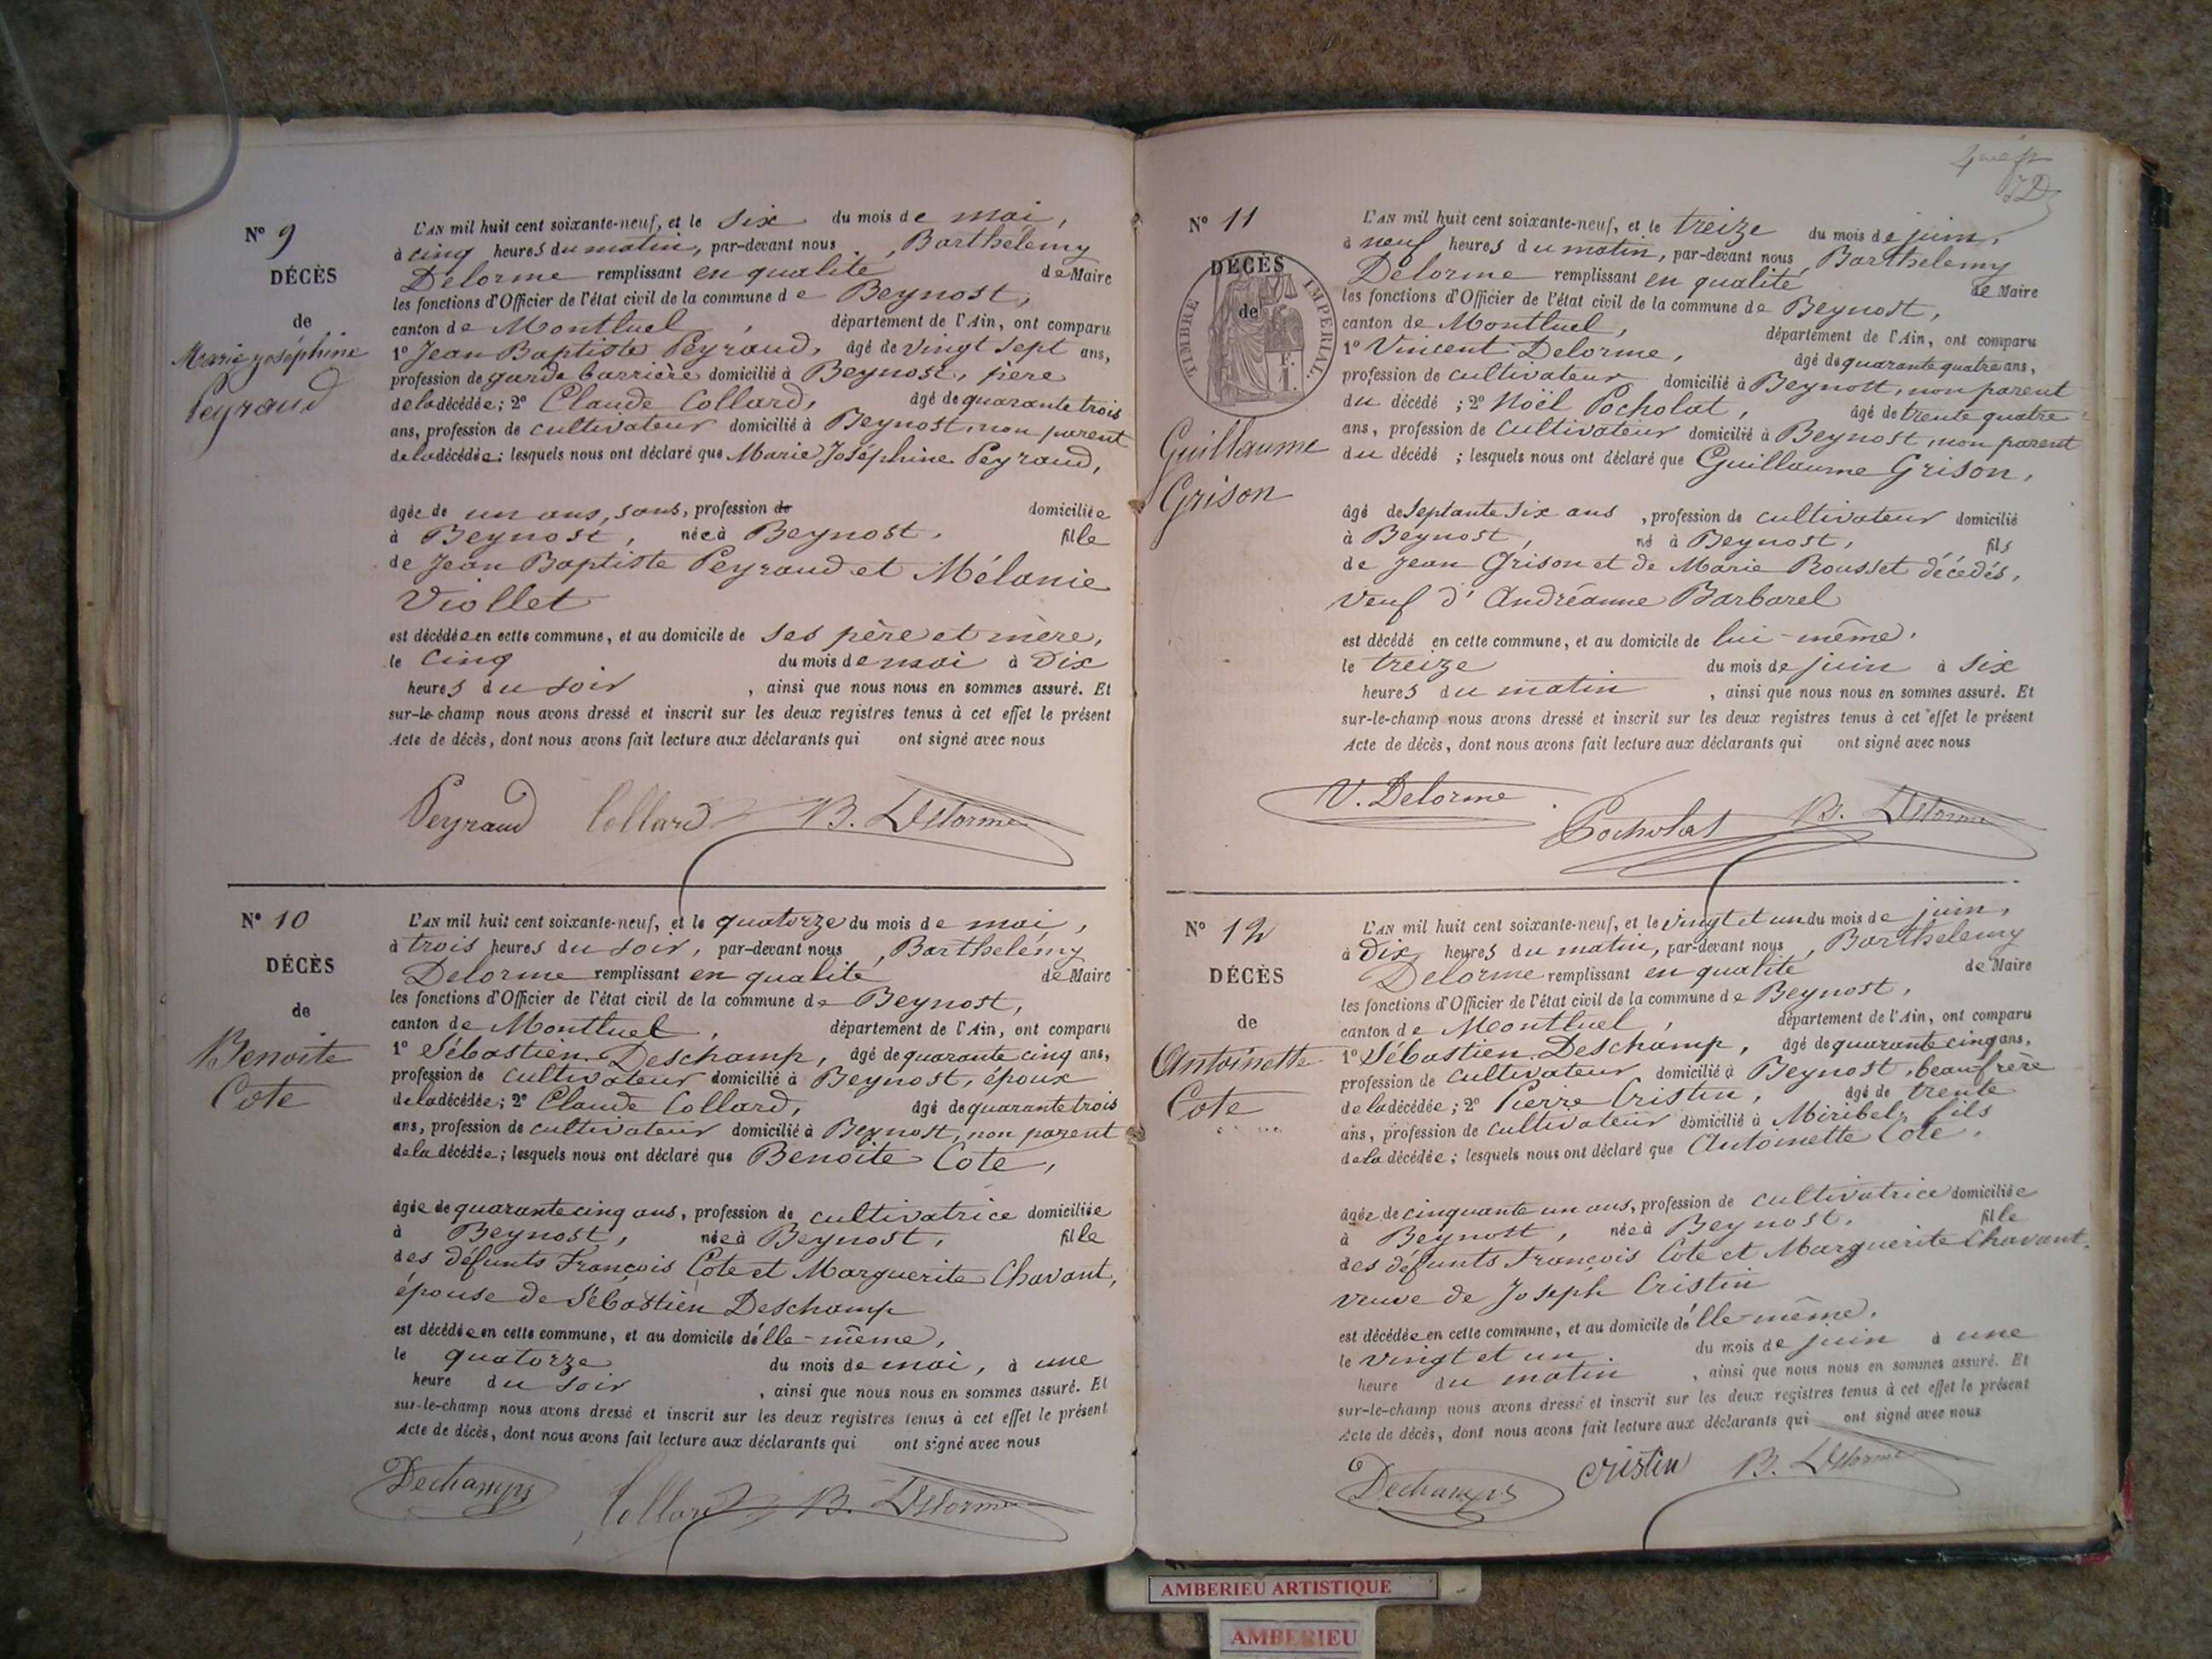 N° 9
DÉCÈS
de
Marie Joséphine
Peyraud
L'AN mil huit cent soixante-neuf, et le six du mois de mai,
à cinq heures du matin, par-devant nous, Barthélemy
Delorme remplissant en qualité de Maire
les fonctions d'Officier de l'état civil de la commune de Beynost,
canton de Montluel, département de l'Ain, ont comparu
1° Jean Baptiste Peyraud, âgé de vingt sept ans,
profession de garde barrière domicilié à Beynost, père
de la décédée; 2° Claude Collard, âgé de quarante trois
ans, profession de cultivateur domicilié à Beynost, non parent
de la décédée; lesquels nous ont déclaré que Marie Joséphine Peyraud,
âgée de un ans, sans, profession de domiciliée
à Beynost, née à Beynost, fille
de Jean Baptiste Peyraud et Mélanie
Viollet
est décédée en cette commune, et au domicile de ses père et mère,
le cinq du mois de mai à dix
heures du soir, ainsi que nous nous en sommes assuré. Et
sur-le-champ nous avons dressé et inscrit sur les deux registres tenus à cet effet le présent
Acte de décès, dont nous avons fait lecture aux déclarants qui ont signé avec nous
Peyraud Collard B. Delorme
N° 10
DÉCÈS
de
Benoite
Cote
L'AN mil huit cent soixante-neuf, et le quatorze du mois de mai,
à trois heures du soir, par-devant nous, Barthélemy
Delorme remplissant en qualité de Maire
les fonctions d'Officier de l'état civil de la commune de Beynost,
canton de Montluel, département de l'Ain, ont comparu
1° Sébastien Deschamp, âgé de quarante cinq ans,
profession de cultivateur domicilié à Beynost, époux
de la décédée; 2° Claude Collard, âgé de quarante trois
ans, profession de cultivateur domicilié à Beynost, non parent
de la décédée; lesquels nous ont déclaré que Benoite Cote,
âgée de quarante cinq ans, profession de cultivatrice domiciliée
à Beynost, née à Beynost, fille
des défunts François Cote et Marguerite Chavant,
épouse de Sébastien Deschamp
est décédée en cette commune, et au domicile d'elle-même,
le quatorze du mois de mai, à une
heure du soir, ainsi que nous nous en sommes assuré. Et
sur-le-champ nous avons dressé et inscrit sur les deux registres tenus à cet effet le présent
Acte de décès, dont nous avons fait lecture aux déclarants qui ont signé avec nous
Dechamps Collard B. Delorme
N° 11
DÉCÈS
de
TIMBRE IMPÉRIAL
F.
1.
Guillaume
Grison
L'AN mil huit cent soixante-neuf, et le treize du mois de juin,
à neuf heures du matin, par-devant nous Barthelemy
Delorme remplissant en qualité de Maire
les fonctions d'Officier de l'état civil de la commune de Beynost,
canton de Montluel, département de l'Ain, ont comparu
1° Vincent Delorme, âgé de quarante quatre ans,
profession de cultivateur domicilié à Beynost, non parent
du décédé; 2° Noël Pocholat, âgé de trente quatre
ans, profession de cultivateur domicilié à Beynost, non parent
du décédé; lesquels nous ont déclaré que Guillaume Grison,
âgé de septante six ans, profession de cultivateur domicilié
à Beynost, né à Beynost, fils
de Jean Grison et de Marie Rousset décédés,
veuf d'Andréanne Barbarel
est décédé en cette commune, et au domicile de lui-même,
le treize du mois de juin à six
heures du matin, ainsi que nous nous en sommes assuré. Et
sur-le-champ nous avons dressé et inscrit sur les deux registres tenus à cet effet le présent
Acte de décès, dont nous avons fait lecture aux déclarants qui ont signé avec nous
V. Delorme Pocholat B. Delorme
N° 12
DÉCÈS
de
Antoinette
Cote
L'AN mil huit cent soixante-neuf, et le vingt et un du mois de juin,
à dix heures du matin, par-devant nous, Barthelemy
Delorme remplissant en qualité de Maire
les fonctions d'Officier de l'état civil de la commune de Beynost,
canton de Montluel, département de l'Ain, ont comparu
1° Sébastien Deschamp, âgé de quarante cinq ans,
profession de cultivateur domicilié à Beynost, beaufrère
de la décédée; 2° Pierre Cristin, âgé de trente
ans, profession de cultivateur domicilié à Miribel, fils
de la décédée; lesquels nous ont déclaré que Antoinette Cote,
âgée de cinquante un ans, profession de cultivatrice domiciliée
à Beynost, née à Beynost, fille
des défunts François Cote et Marguerite Chavant,
veuve de Joseph Cristin
est décédée en cette commune, et au domicile d'elle-même,
le vingt et un du mois de juin à une
heure du matin, ainsi que nous nous en sommes assuré. Et
sur-le-champ nous avons dressé et inscrit sur les deux registres tenus à cet effet le présent
Acte de décès, dont nous avons fait lecture aux déclarants qui ont signé avec nous
Dechamps Cristin B. Delorme
AMBERIEU ARTISTIQUE
AMBERIEU